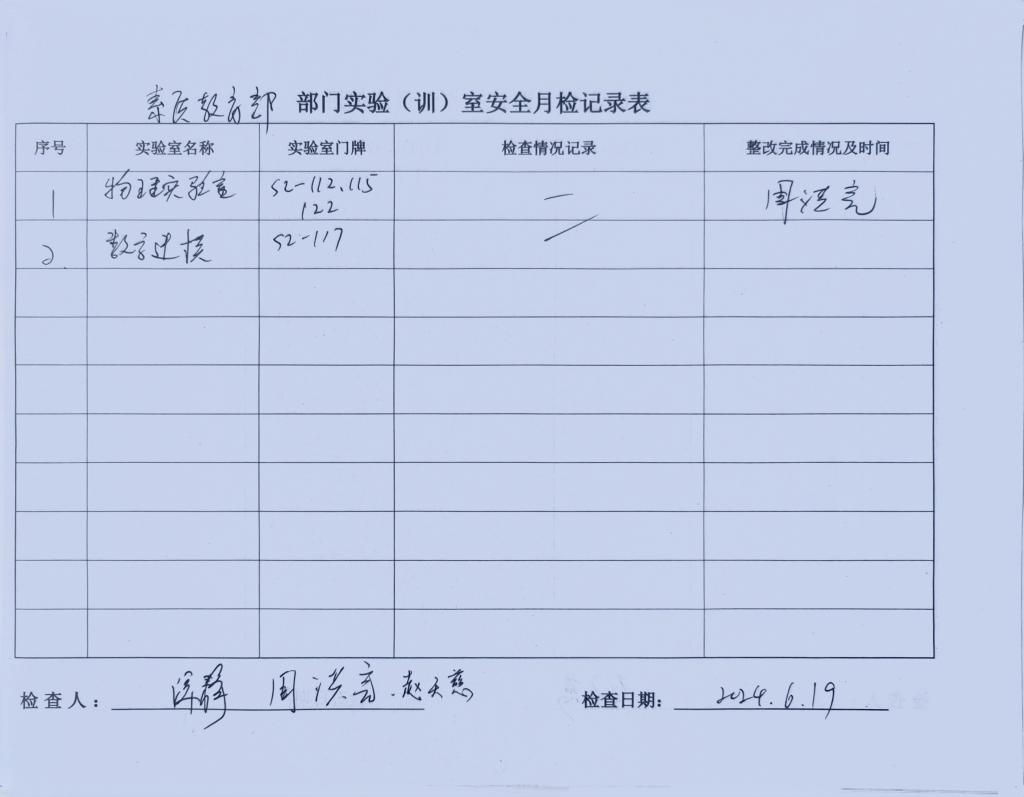 素质教育部 部门实验（训）室安全月检记录表
序号 实验室名称 实验室门牌 检查情况记录 整改完成情况及时间
1 物理实验室 S2-112.115 122 周洪亮
2 数字建模 S2-117
检查人： 周洪亮 赵天慈 检查日期： 2024.6.19